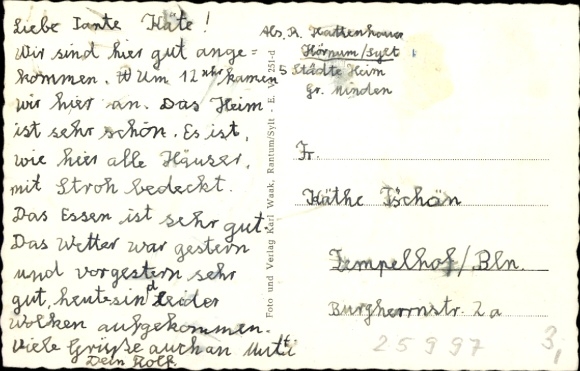 Liebe Tante Käte!
Wir sind hier gut ange=
kommen. Um 12 uhr kamen
wir hier an. Das Heim
ist sehr schön. Es ist,
wie hier alle Häuser,
mit Stroh bedeckt.
Das Essen ist sehr gut.
Das Wetter war gestern
und vorgestern sehr
gut, heute sind leider
Wolken aufgekommen.
Viele Grüße auch an
Dein Rolf.
Foto und Verlag Karl Waak, Rantum/Sylt - E. V. 251-d
Abs. R. Kattenhauer
Hörnum/Sylt
5 Städte Heim
Gr. Minden
Fr.
Käthe
Tempelhof/Bln.
Burgherrnstr. 2a
25997
3,